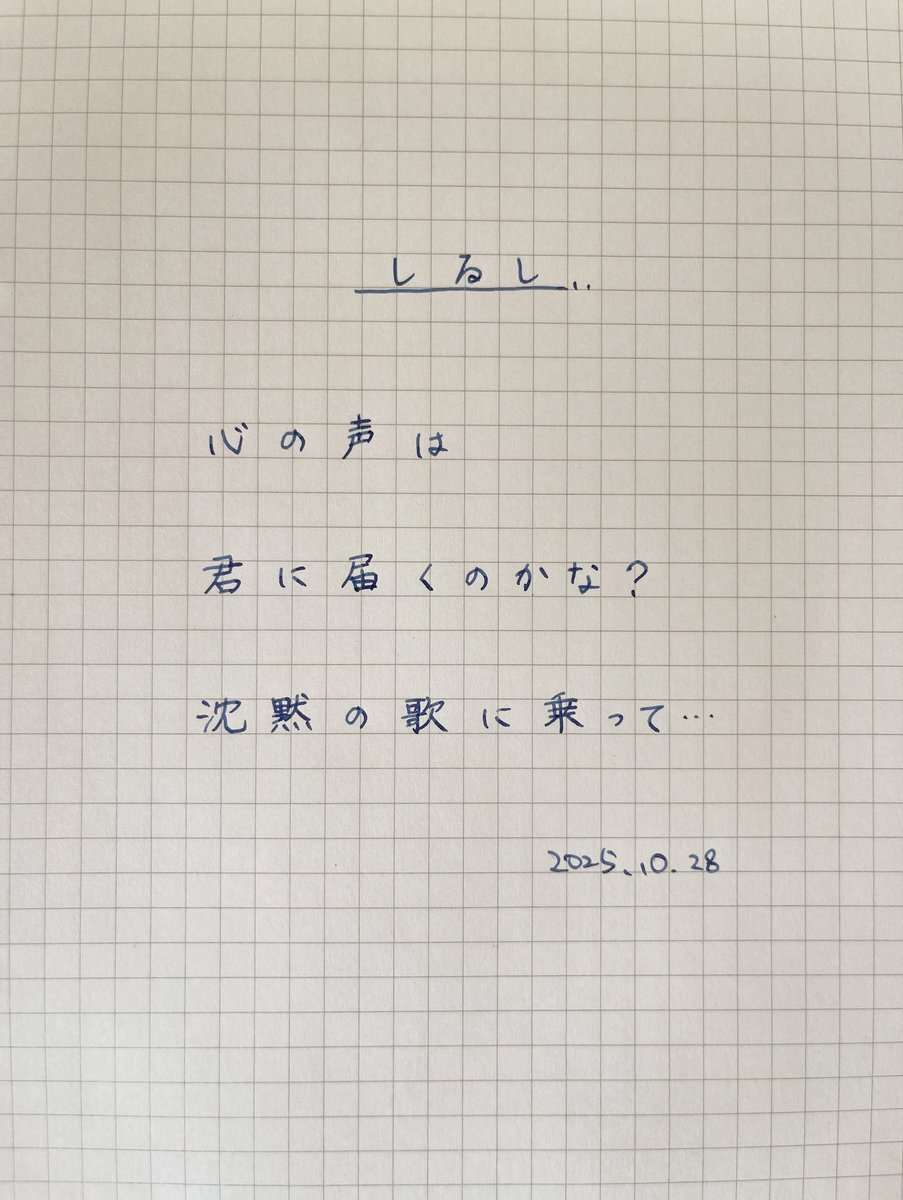 しるし..
心の声は
君に届くのかな?
沈黙の歌に乗って…
2025.10.28